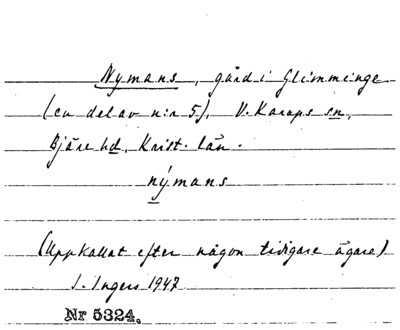 Nymans, gård i Glimminge
(en del av n:r 5), V. Karups sn,
Bjäre hd, Krist. län.
nýmans
(Uppkallat efter någon tidigare ägare)
I. Ingers 1947
Nr 5324.